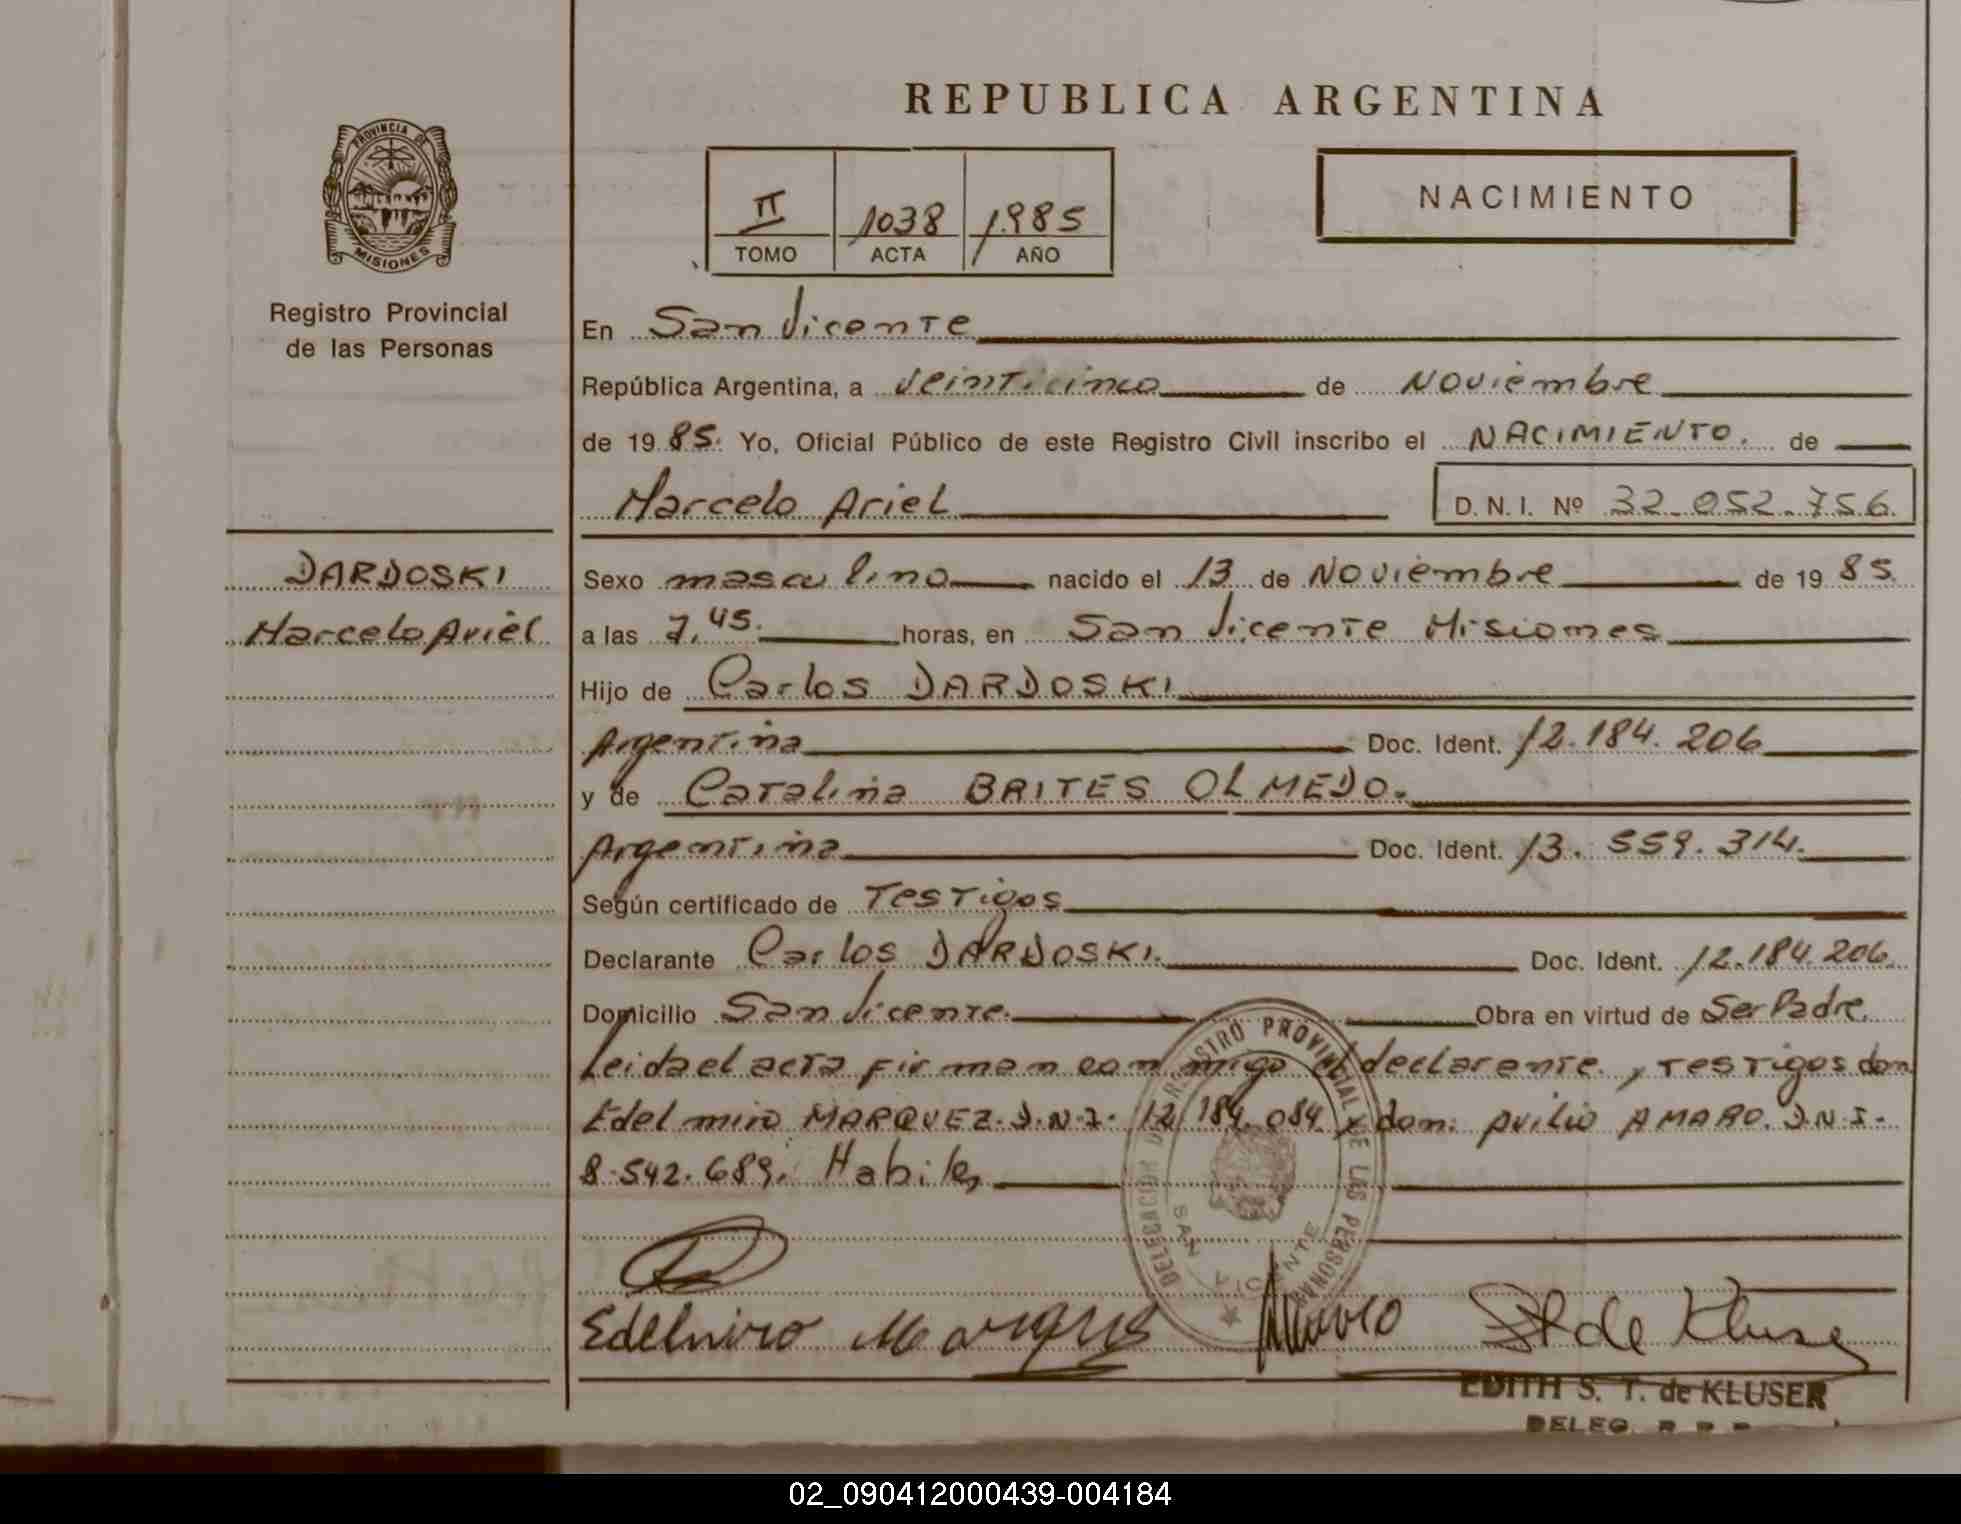 REPUBLICA ARGENTINA
PROVINCIA DE
MISIONES
Registro Provincial
de las Personas
II 1038 1985
TOMO ACTA AÑO
NACIMIENTO
En San Vicente
República Argentina, a veinticinco de Noviembre
de 1985. Yo, Oficial Público de este Registro Civil inscribo el NACIMIENTO. de
Marcelo Ariel D. N. I. Nº 32.052.756.
DARDOSKI
Marcelo Ariel
Sexo masculino nacido el 13 de Noviembre de 1985.
a las 7,45. horas, en San Vicente Misiones
Hijo de Carlos DARDOSKI
Argentina Doc. Ident. 12.184.206
y de Catalina BRITES OLMEDO.
Argentina Doc. Ident. 13.559.314.
Según certificado de Testigos
Declarante Carlos DARDOSKI. Doc. Ident. 12.184.206.
Domicilio San Vicente. Obra en virtud de Ser Padre.
Leida el acta firman conmigo el declarante, y testigos don
Edelmiro MARQUEZ. D.N.I. 12.184.084 y don: Avilio AMARO. D.N.I.
8.542.689. Habiles
DELEGACION DEL REGISTRO PROVINCIAL DE LAS PERSONAS
SAN VICENTE
Edelmiro Marques Amaro St de Kluser
EDITH S. T. de KLUSER
DELEG. R. P. P.
02_090412000439-004184